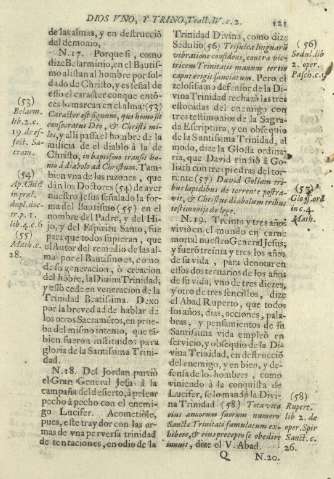 DIOS VNO, Y TRINO, Tratt. IV. c. 2. 121
de las almas, y en destrucciõ
del demonio.
N. 17. Porque si, como
dize Belarminio, en el Bautis-
mo alistan al hombre por sol-
dado de Christo, y es señal de
esso el caracter conque entõ-
ces lo marcan en el alma: (53)
Caracter est signum, quo homo sit
consecratus Deo, & Christi mi-
les, y alli passa el hombre de la
milicia de el diablo à la de
Christo, in baptismo transit ho-
mo à diabolo ad Christum. Tam-
bien vna de las razones, que
dàn los Doctores (54) de aver
nuestro Jesus señalado la for-
ma del Bautismo (55) en el
nombre del Padre, y del Hi-
jo, y del Espiritu Santo, fue
para que todos supieran, que
el Autor del remedio de las al-
mas por el Bautismo es, como
de su generacion, ò creacion
del hõbre, la Divina Trinidad,
y esso cede en veneracion de la
Trinidad Beatissima. Dexo
por la brevedad de hablar de
los otros Sacramẽtos, en prue-
ba del mismo intento, que tã-
bien fueron instituidos para
gloria de la Santissima Trini-
dad.
N. 18. Del Jordan partiò
el Gran General Jesus à la
campaña del desierto, à pelear
pecho à pecho con el enemi-
go Lucifer. Acometiòle,
pues, este traydor con las ar-
mas de vna perversa trinidad
de tentaciones, en odio de la
(53)
Belarm.
lib. 2. c.
(54)
(55)
Math. c.
28.
Trinidad Divina, como dize
Sedulio (56)
Pero el
zelosissimo defensor de la Di-
vina Trinidad rechaza las tres
estocadas del enemigo con
tres testimonios de la Sagra-
da Escriptura, y en obsequio
de la Santissima Trinidad, al
modo, dize la Glossa ordina-
ria, que David rindiò à Go-
liath con tres piedras del tor-
rente: (57) David Goliam tri-
bus lapidibus de torrente prostra-
vit, & Christus diabolum tribus
testimonijs de lege.
N. 19. Treinta y tres años
viviò en el mundo en carne
mortal nuestro General Jesus;
y fueron treinta y tres los años
de su vida, para denotar en
ellos dos ternarios de los años
de su vida, vno de tres diezes,
y otro de tres sencillos, dize
el Abad Ruperto, que todos
los años, dias, acciones, pala-
bras, y pensamientos de su
Santissima vida empleò en
servicio, y obsequio de la Di-
vina Trinidad, en destrucciõ
del enemigo, y en bien, y de-
fensa de los hombres, y como
viniendo à la conquista de
Lucifer, se lo mandò la Divi-
na Trinidad (58) Tota vita
eius annorum suorum numero
Sanctæ Trinitatis famulatum ex-
hibere, & eius præcepto se obedire
innuit, dize el V. Abad.
Q N. 20.
(56)
Sedul. lib
2. oper.
Pasch. c.
(57)
Glos. ord
in c. 4.
Math.
(58)
Rupert.
lib 2. de
oper. Spir
Sanct. c.
26.